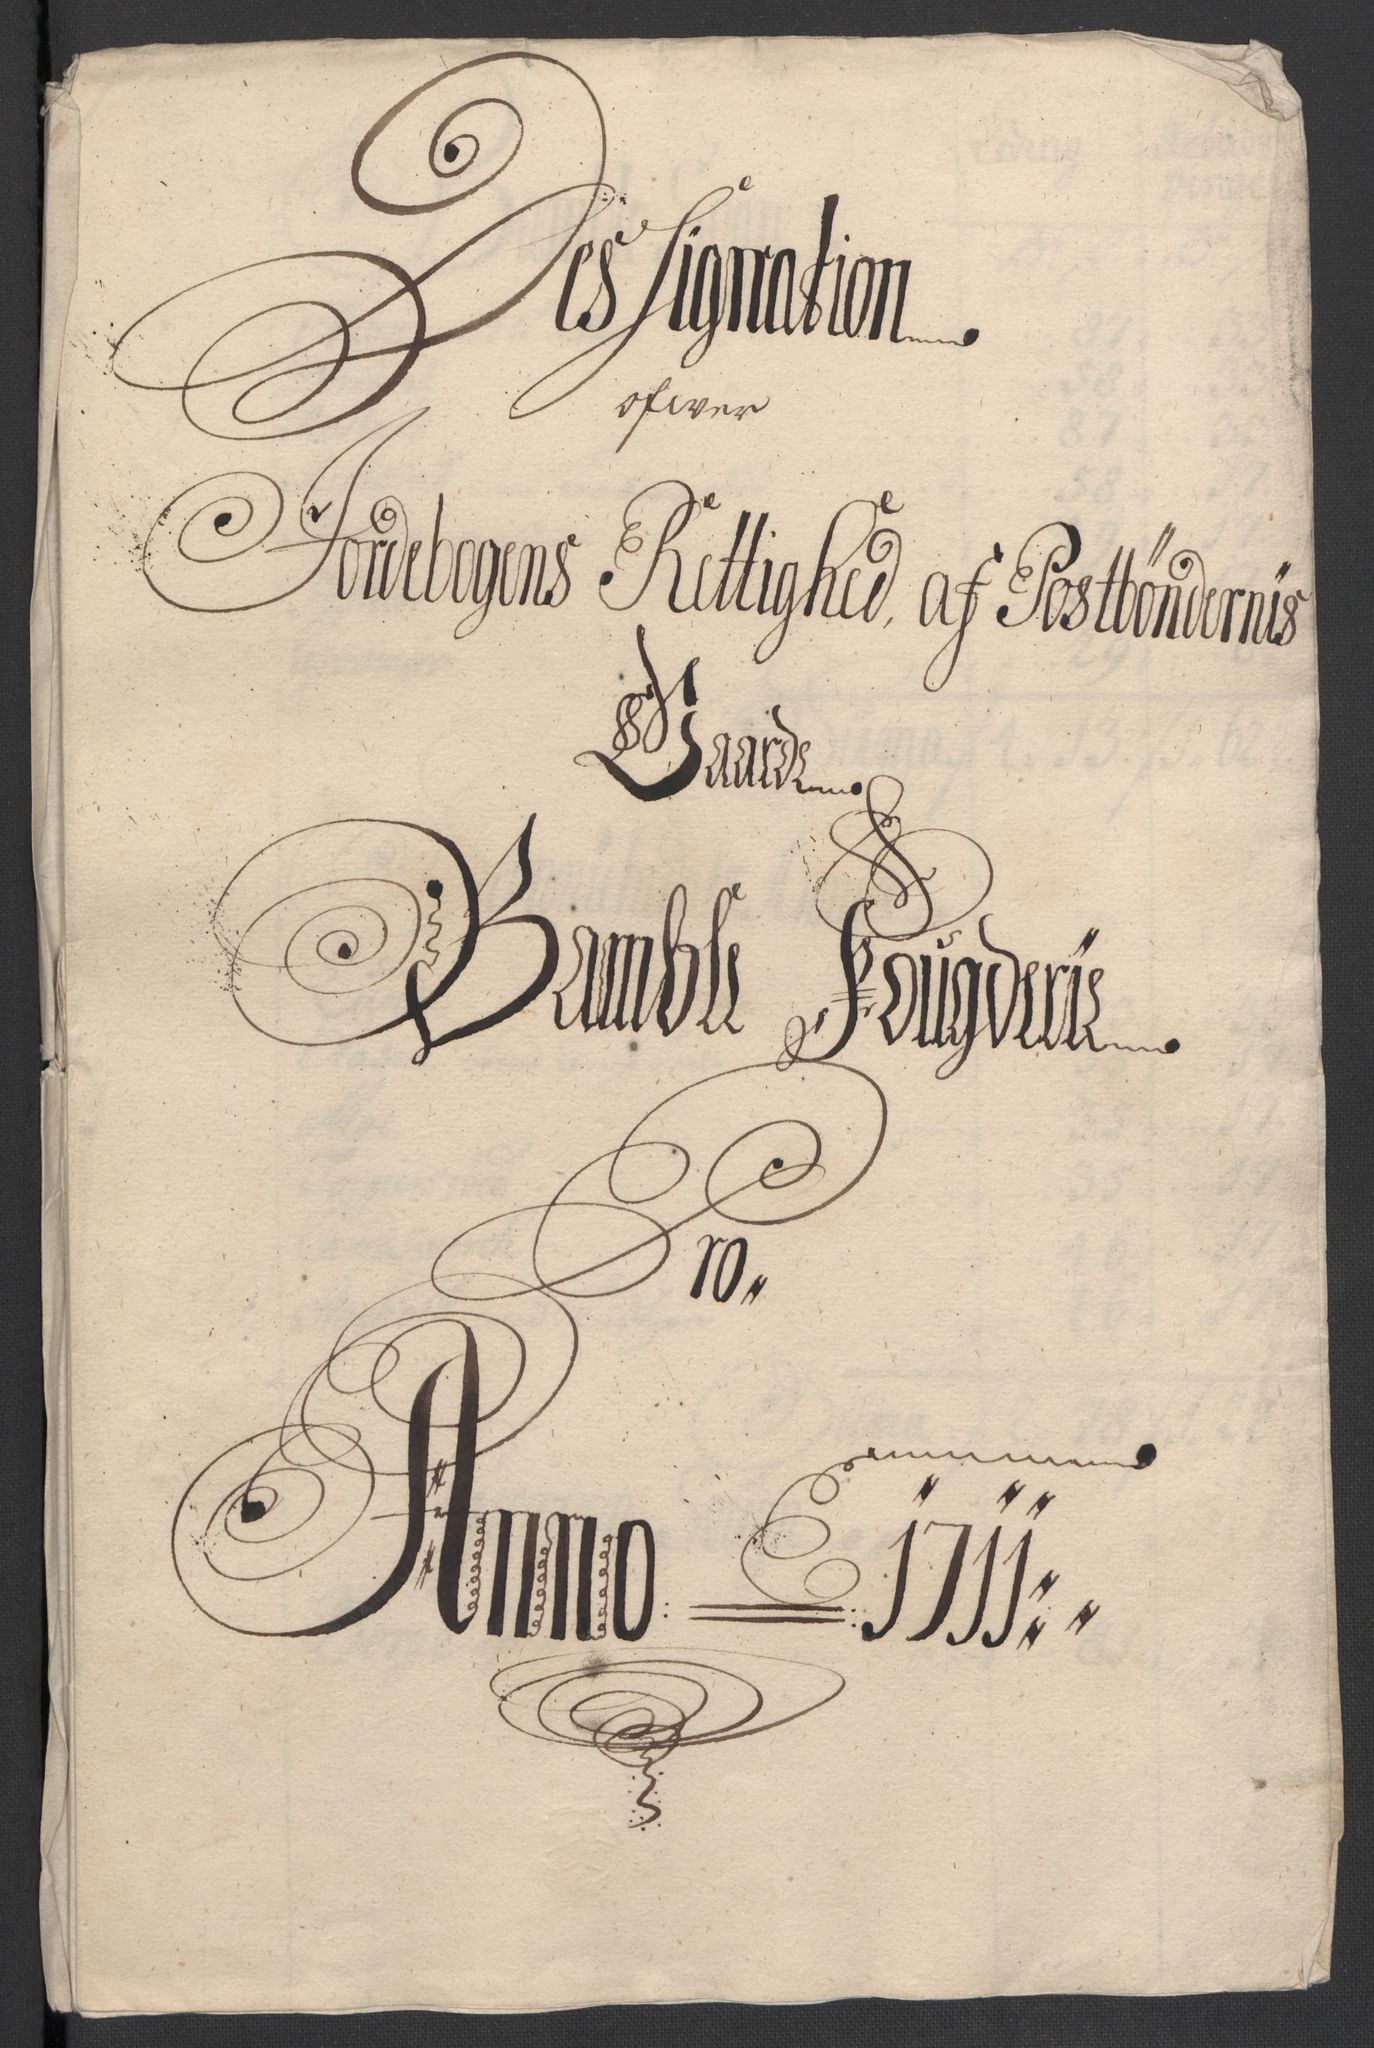 Des Signation
ofwer
Jordebogens Rettighed, af Postböndernis
Gaarde
Bamble Fougderie
Pro
Anno 1711